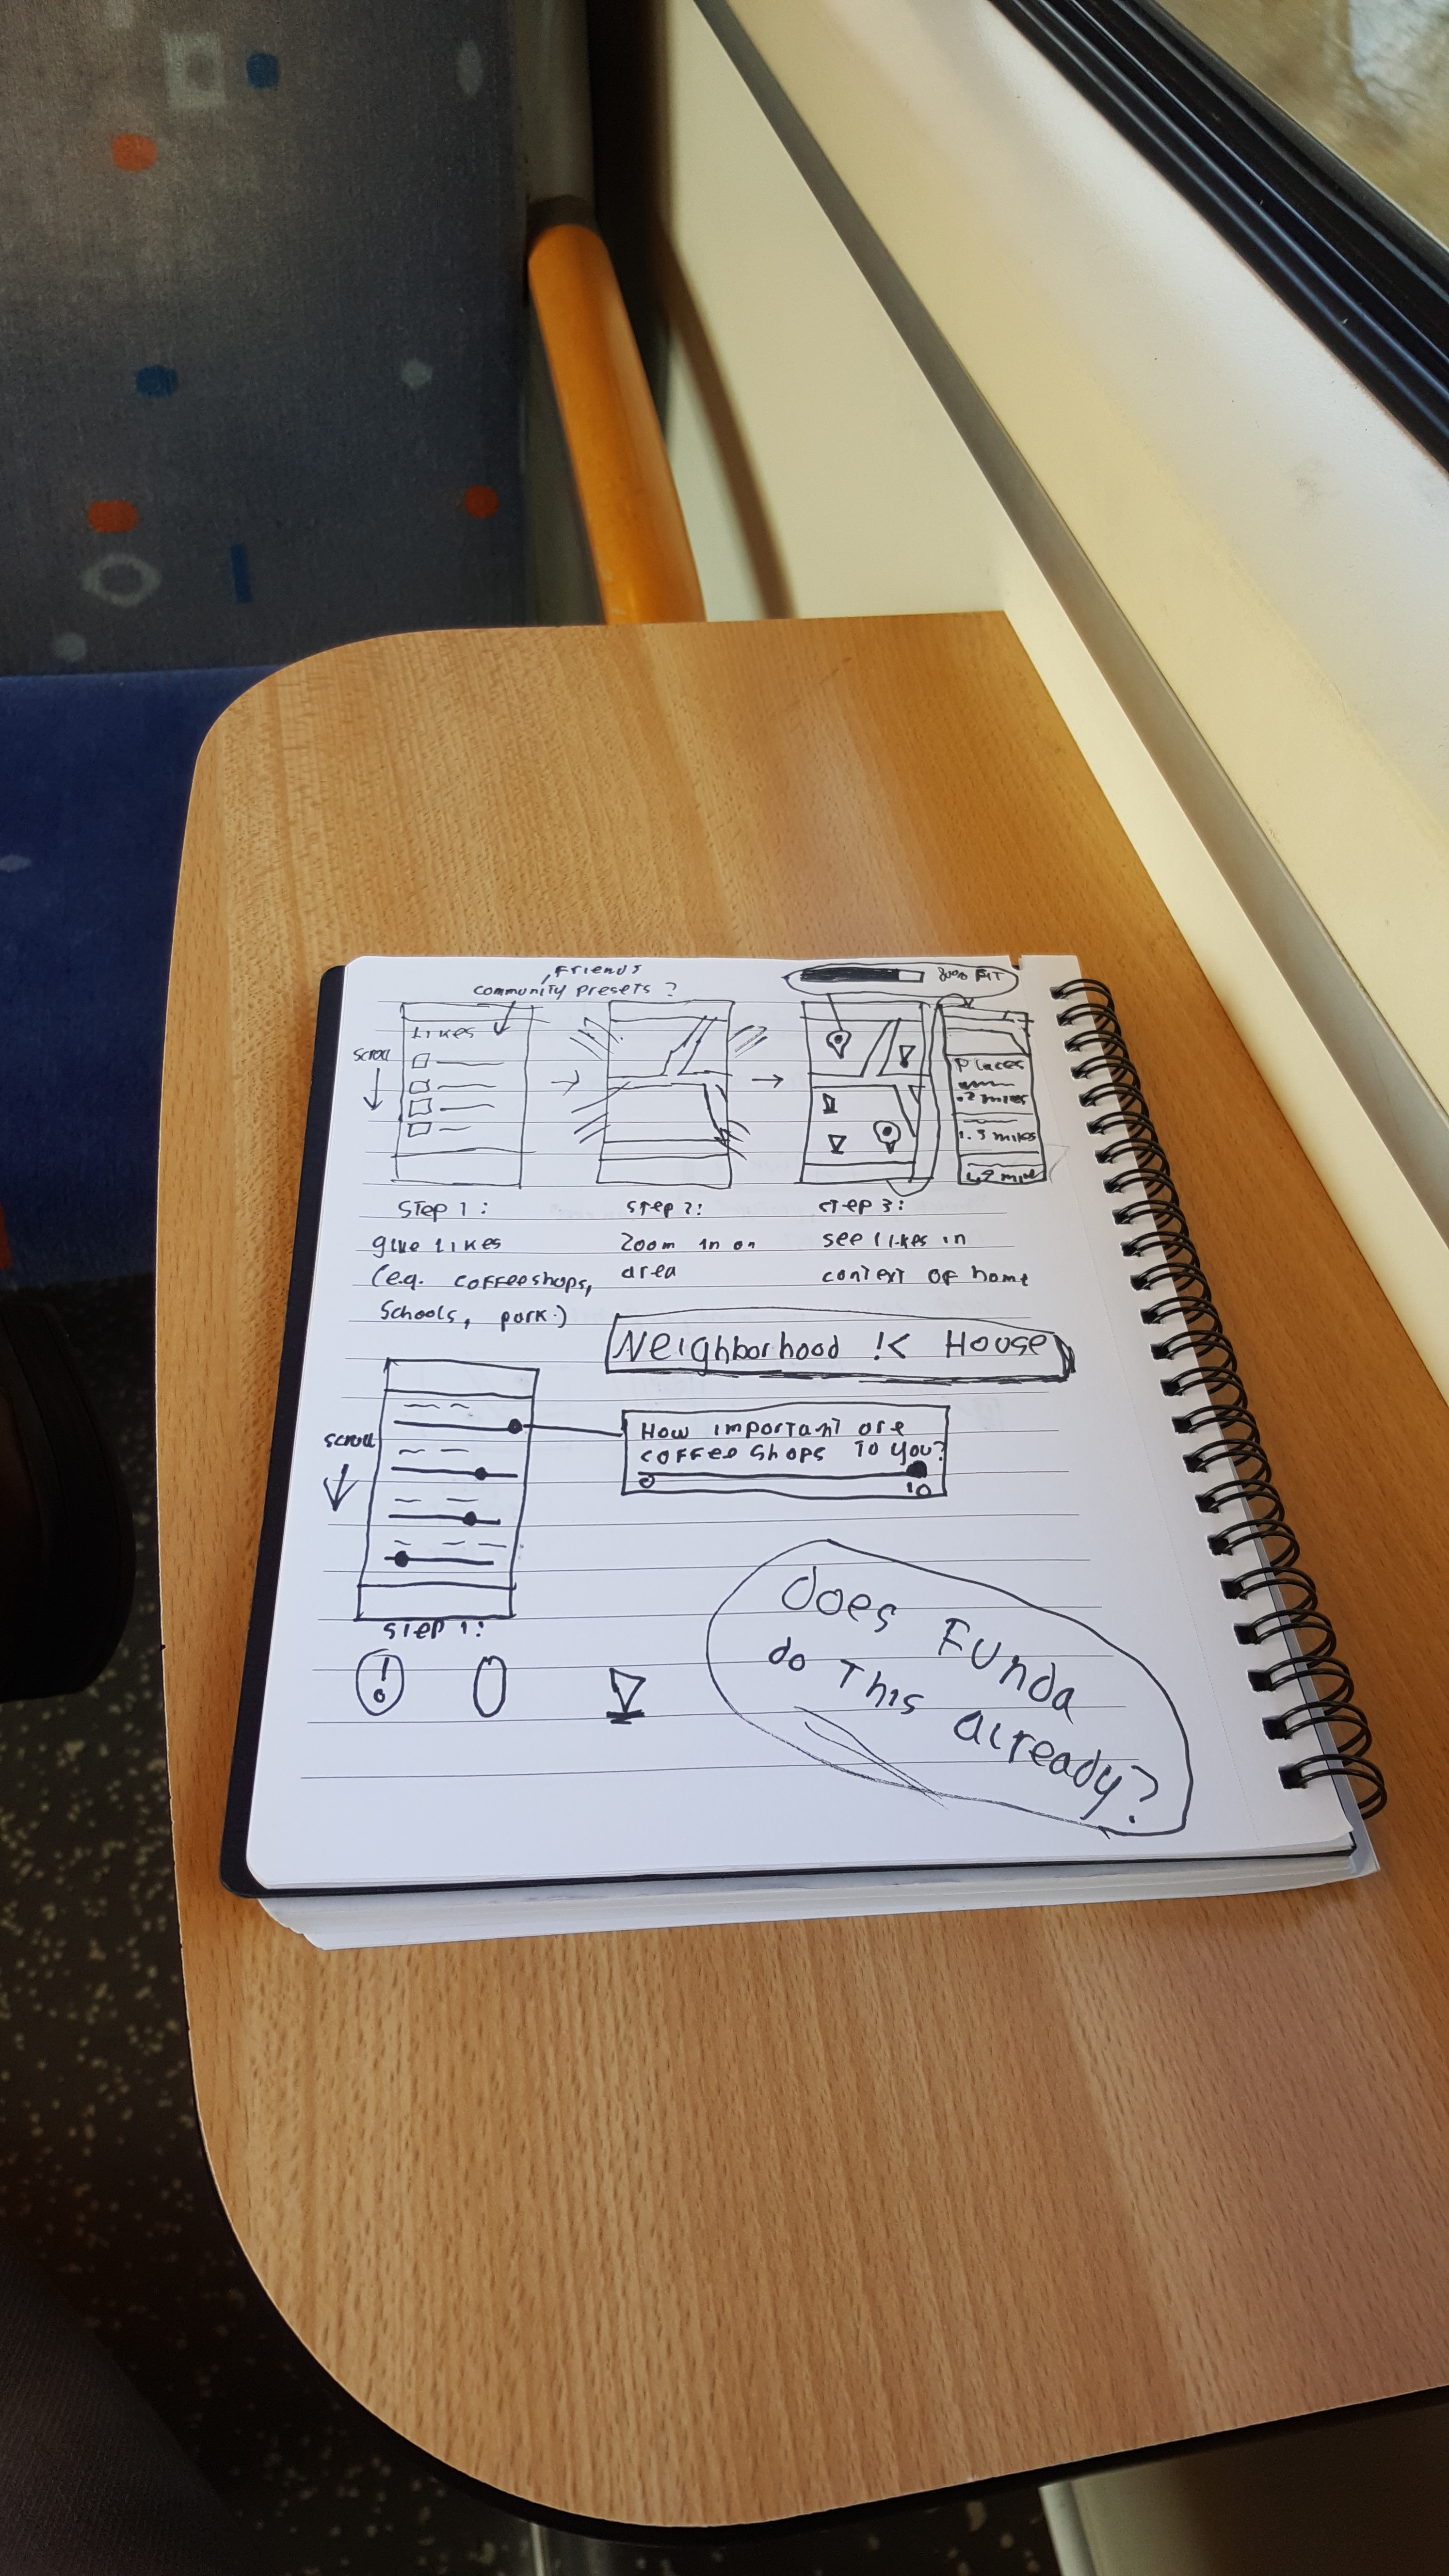 , Friends
community presets ?
80% FIT
Likes
scroll
Places
.2 miles
1.3 miles
Step 1:
give Likes
(e.g. coffeeshops,
Schools, park.)
Step 2:
Zoom in on
area
Step 3:
see likes in
context of home
Neighborhood !< House
scroll
How important are
coffee shops to you?
0
10
Step 1:
!
Does Funda
do This already?